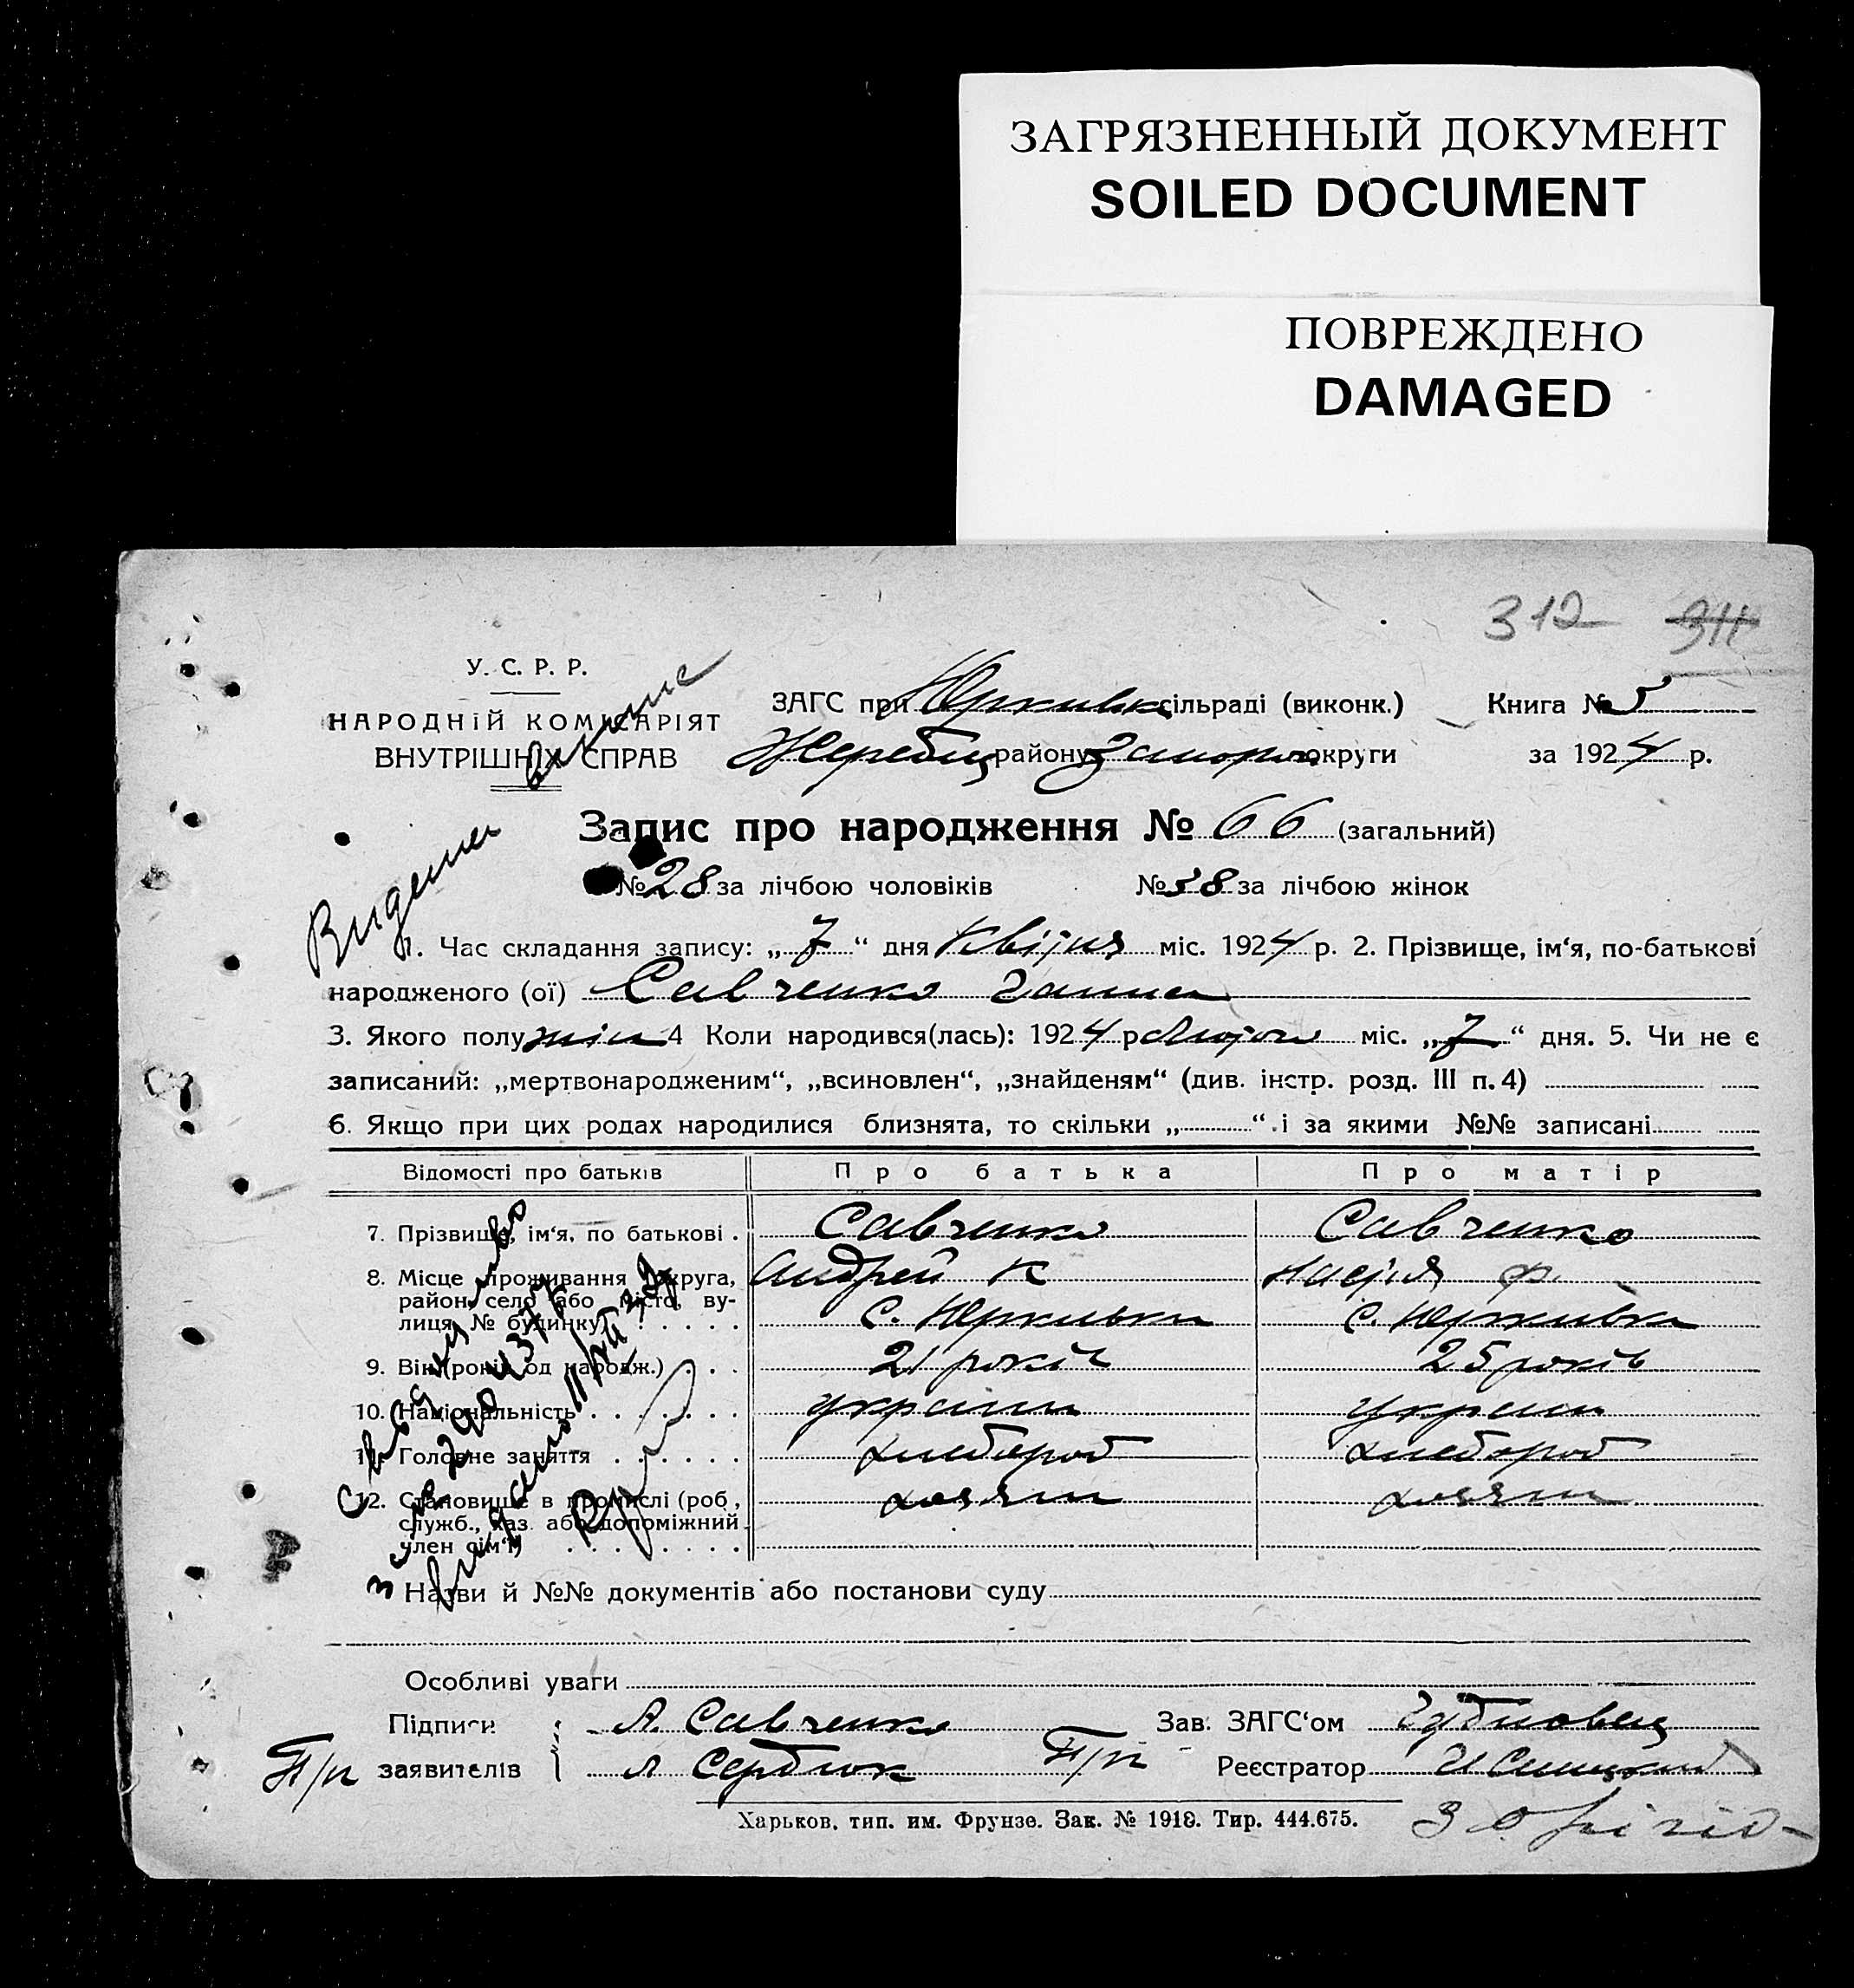 ЗАГРЯЗНЕННЫЙ ДОКУМЕНТ
SOILED DOCUMENT
ПОВРЕЖДЕНО
DAMAGED
312 311
У. С. Р. Р.
НАРОДНІЙ КОМІСАРІЯТ
ВНУТРІШНІХ СПРАВ
ЗАГС при Юркивк сільраді (виконк.) Книга № 5
Жеребец району Запорож округи за 1924 р.
Запис про народження № 66 (загальний)
№ 28 за лічбою чоловіків № 38 за лічбою жінок
1. Час складання запису: „7“ дня Квітня міс. 1924 р. 2. Прізвище, ім‘я, по-батькові
народженого (ої) Савченко Ганна
3. Якого полу жін 4 Коли народився(лась): 1924 р. Лютого міс. „7“ дня. 5. Чи не є
записаний: „мертвонародженим“, „всиновлен“, „знайденям“ (див. інстр. розд. III п. 4)
6. Якщо при цих родах народилися близнята, то скільки „ “ і за якими №№ записані
Відомості про батьків Про батька Про матір
7. Прізвище, ім‘я, по батькові . Савченко Савченко
8. Місце проживання (округа, Андрей К Настя Ф.
район, село або місто, ву-
лиця, № будинку) . . . . . с. Юркивка с. Юркивка
9. Вік (років од народж.) . . . 21 років 25 років
10. Національність . . . . . . . україн україн
11. Головне заняття . . . . . . хлебороб хлебороб
12. Становище в промислі (роб., хозяин хозяин
служб., хаз. або допоміжний
член сім‘ї) . . . . . . . .
Назви й №№ документів або постанови суду
Особливі уваги
Підписи А. Савченко Зав. ЗАГС‘ом
П/п заявителів А Сердюк П/п Реєстратор
Харьков, тип. им. Фрунзе. Зак. № 1918. Тир. 444.675.